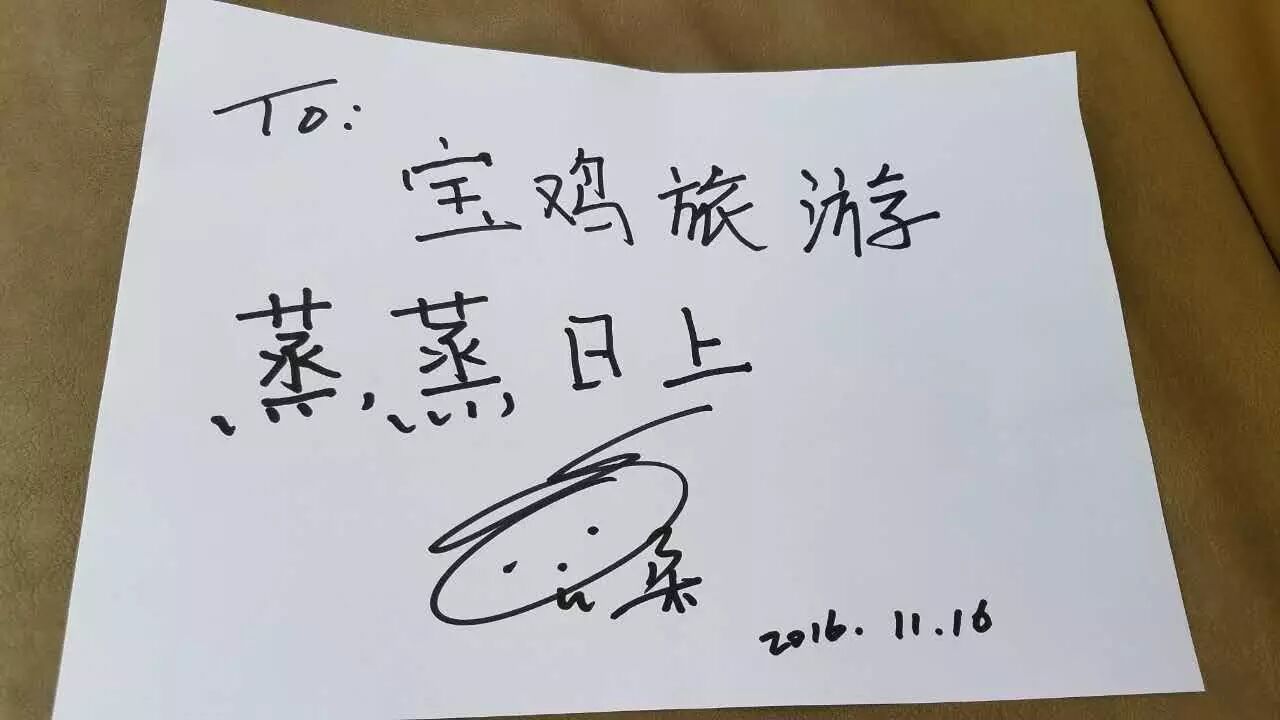 To:
宝鸡旅游
蒸蒸日上
2016.11.16